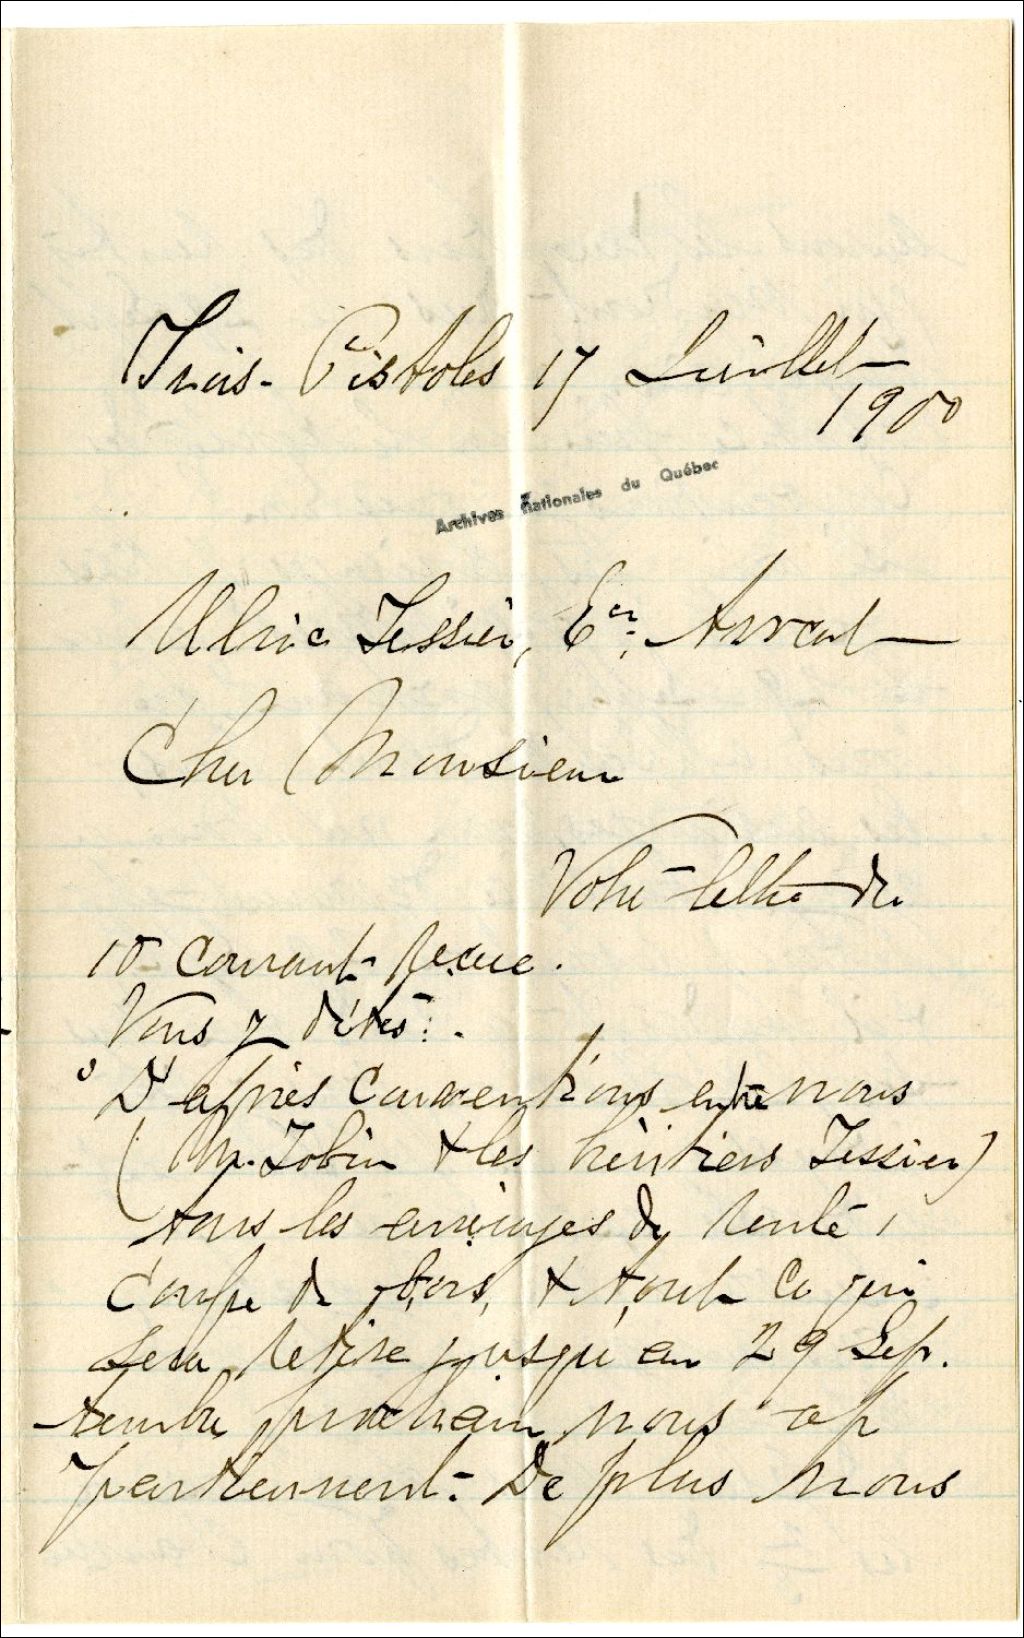 Trois-Pistoles 17 Juillet
1900
Archives nationales du Québec
Ulric Tessier, Ecr. Avocat
Cher Monsieur
Votre lettre du
10 Courant reçue.
Vous y dites:
D'après Conventions entre nous
(M. Tobin & les héritiers Tessier)
tous les arrérages de rente,
Coupe de bois, & tout ce qui
sera retiré jusqu'au 29 Sep.
tembre prochain nous ap
partiennent. De plus nous